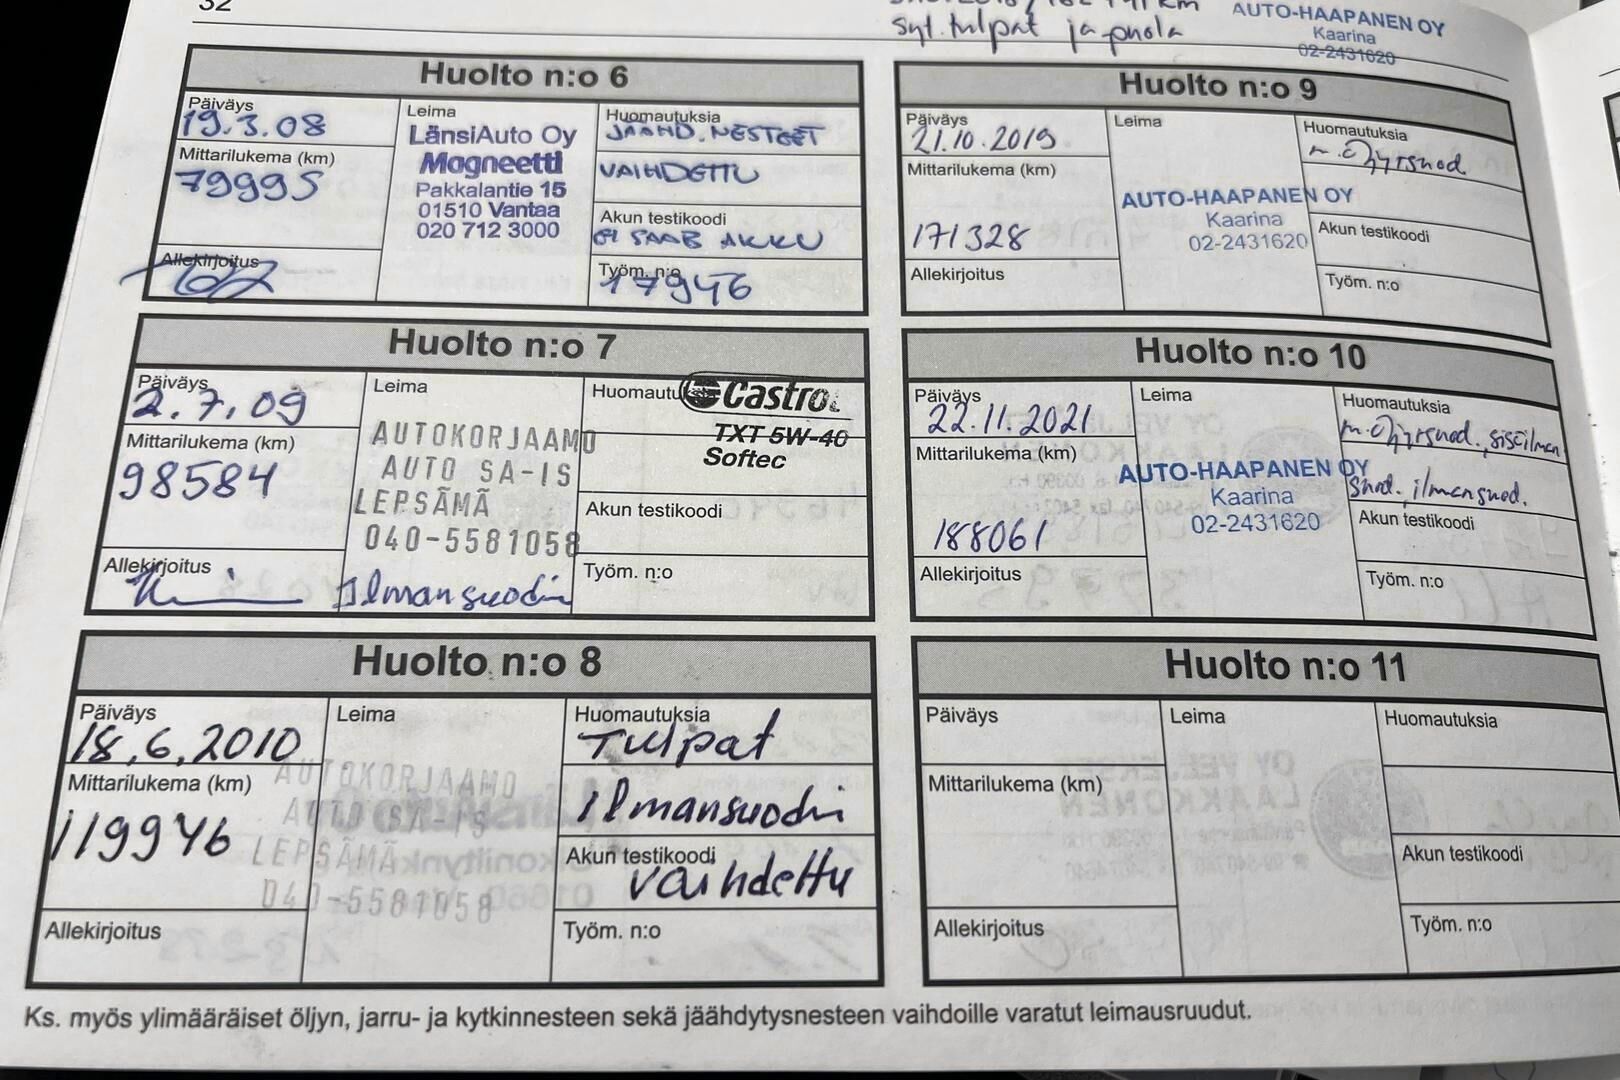 32
syt.tulpat ja puola
AUTO-HAAPANEN OY
Kaarina
02-2431620
Huolto n:o 6
Päiväys
19.3.08
Mittarilukema (km)
79995
Allekirjoitus
Leima
LänsiAuto Oy
Magneetti
Pakkalantie 15
01510 Vantaa
020 712 3000
Huomautuksia
JÄÄHD.NESTEET
VAIHDETTU
Akun testikoodi
SAAB AKKU
Työm. n:o
17946
Huolto n:o 7
Päiväys
2.7.09
Mittarilukema (km)
98584
Allekirjoitus
Leima
AUTOKORJAAMO
AUTO SA-IS
LEPSÄMÄ
040-5581058
Ilmansuodin
Huomautu
Castrol
TXT 5W-40
Softec
Akun testikoodi
Työm. n:o
Huolto n:o 8
Päiväys
18.6.2010
Mittarilukema (km)
119946
Allekirjoitus
Leima
AUTOKORJAAMO
AUTO SA-IS
LEPSÄMÄ
040-5581058
Huomautuksia
Tulpat
Ilmansuodin
Akun testikoodi
vaihdettu
Työm. n:o
Huolto n:o 9
Päiväys
21.10.2019
Mittarilukema (km)
171328
Allekirjoitus
Leima
AUTO-HAAPANEN OY
Kaarina
02-2431620
Huomautuksia
m.öljy,suod
Akun testikoodi
Työm. n:o
Huolto n:o 10
Päiväys
22.11.2021
Mittarilukema (km)
188061
Allekirjoitus
Leima
AUTO-HAAPANEN OY
Kaarina
02-2431620
Huomautuksia
m.öljy,suod. sisäilman
suod. ilmansuod.
Akun testikoodi
Työm. n:o
Huolto n:o 11
Päiväys
Mittarilukema (km)
Allekirjoitus
Leima
Huomautuksia
Akun testikoodi
Työm. n:o
Ks. myös ylimääräiset öljyn, jarru- ja kytkinnesteen sekä jäähdytysnesteen vaihdoille varatut leimausruudut.